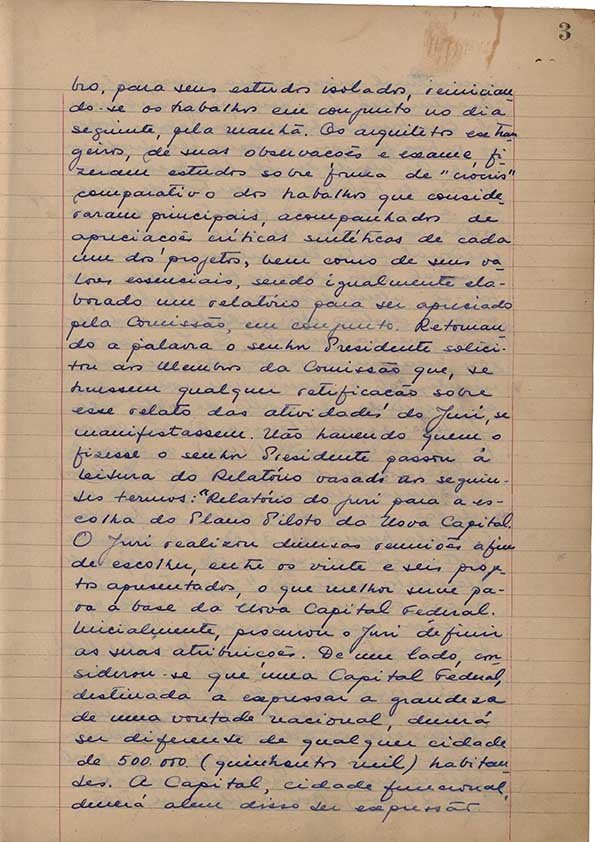 3
bro, para seus estudos isolados, reinician-
do-se os trabalhos em conjunto no dia
seguinte, pela manhã. Os arquitetos estran-
geiros, de suas observações e exame, fi-
zeram estudos sobre forma de "crócris"
comparativo dos trabalhos que conside-
raram principais, acompanhados de
apreciações críticas sintéticas de cada
um dos projetos, bem como de seus va-
lores essenciais, sendo igualmente ela-
borado um relatório para ser apreciado
pela Comissão, em conjunto. Retoman-
do a palavra o senhor Presidente solici-
tou aos Membros da Comissão que, se
tivessem qualquer retificação sobre
esse relato das atividades do Juri, se
manifestassem. Não havendo quem o
fizesse o senhor Presidente passou á
leitura do Relatório vasado nos seguin-
tes termos: "Relatório do juri para a es-
colha do Plano Piloto da Nova Capital.
O Juri realizou diversas reuniões afim
de escolher, entre os vinte e seis proje-
tos apresentados, o que melhor serve pa-
ra a base da Nova Capital Federal.
Inicialmente, procurou o Juri definir
as suas atribuições. De um lado, con-
siderou-se que uma Capital Federal,
destinada a expressar a grandeza
de uma vontade nacional, deverá
ser diferente de qualquer cidade
de 500.000 (quinhentos mil) habitan-
tes. A Capital, cidade funcional,
deverá alem disso ser expressão